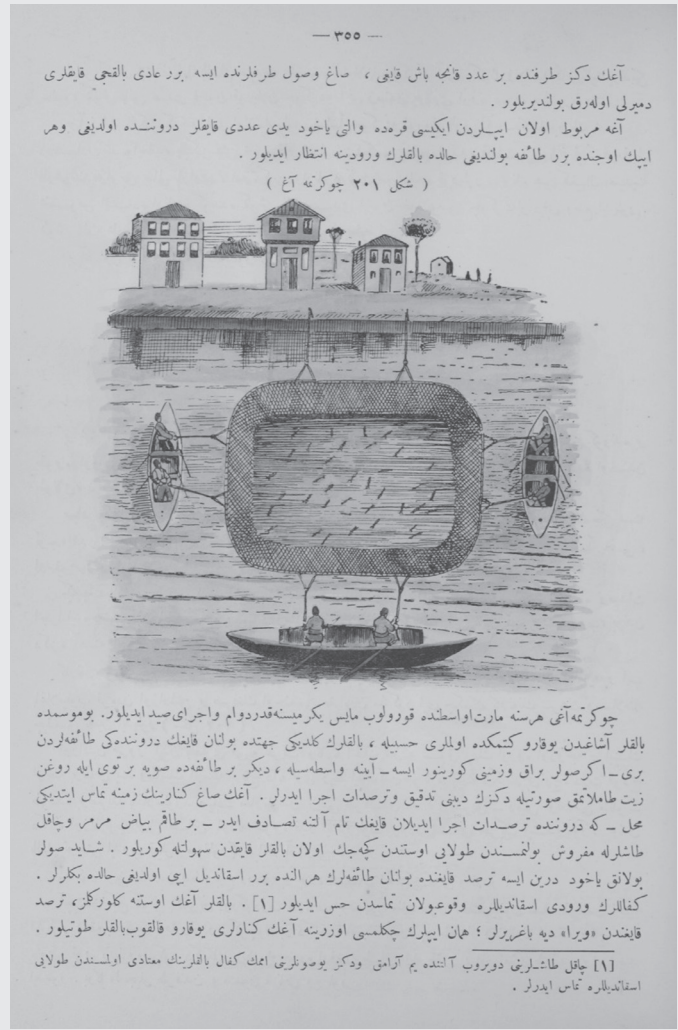 — ٣٥٥ —
آغك دكز طرفنده بر عدد قانجه باش قايغى ، صاغ وصول طرفلرنده ايسه برر عادى بالقجى قايقلرى
دميرلى اوله‌رق بولنديريلور .
آغه مربوط اولان ايپلردن ايكيسى قره‌ده والتى ياخود يدى عددى قايقلر دروننده اولديغى وهر
ايپك اوجنده برر طائفه بولنديغى حالده بالقلرك ورودينه انتظار ايديلور .
( شكل ٢٠١ چوكرتمه آغ )
چوكرتمه آغى هرسنه مارت اواسطنده قورولوب مايس يكرميسنه قدر دوام واجراى صيد ايديلور. بوموسمده
بالقلر آشاغيدن يوقارو كيتمكده اولملرى حسبيله ، بالقلرك كلديكى جهتده بولنان قايغك دروننده‌كى طائفه‌لردن
برى ــ اكر صولر براق وزمينى كورينور ايسه ــ آينه واسطه‌سيله ، ديكر بر طائفه‌ده صويه بر توى ايله روغن
زيت طاملاتمق صورتيله دكزك ديبنى تدقيق وترصدات اجرا ايدرلر . آغك صاغ كنارينك زمينه تماس ايتديكى
محل ــ كه دروننده ترصدات اجرا ايديلان قايغك تام آلتنه تصادف ايدر ــ بر طاقم بياض مرمر وچاقل
طاشلرله مفروش بولنمسندن طولايى اوستندن كچه‌جك اولان بالقلر قايقدن سهولتله كوريلور . شايد صولر
بولانق ياخود درين ايسه ترصد قايغنده بولنان طائفه‌لرك هر النده برر اسقانديل ايپى اولديغى حالده بكلرلر .
كفاللرك ورودى اسقانديللره وقوعبولان تماسدن حس ايديلور [١] . بالقلر آغك اوستنه كلوركلمز، ترصد
قايغندن «ويرا» ديه باغريرلر ؛ همان ايپلرك چكلمسى اوزرينه آغك كنارلرى يوقارو قالقوب بالقلر طوتيلور .
[١] چاقل طاشلرينى دويروب آلتنده يم آرامق ودكز يوصونلرينى اممك كفال بالقلرينك معتادى اولمسندن طولايى
اسقانديللره تماس ايدرلر .